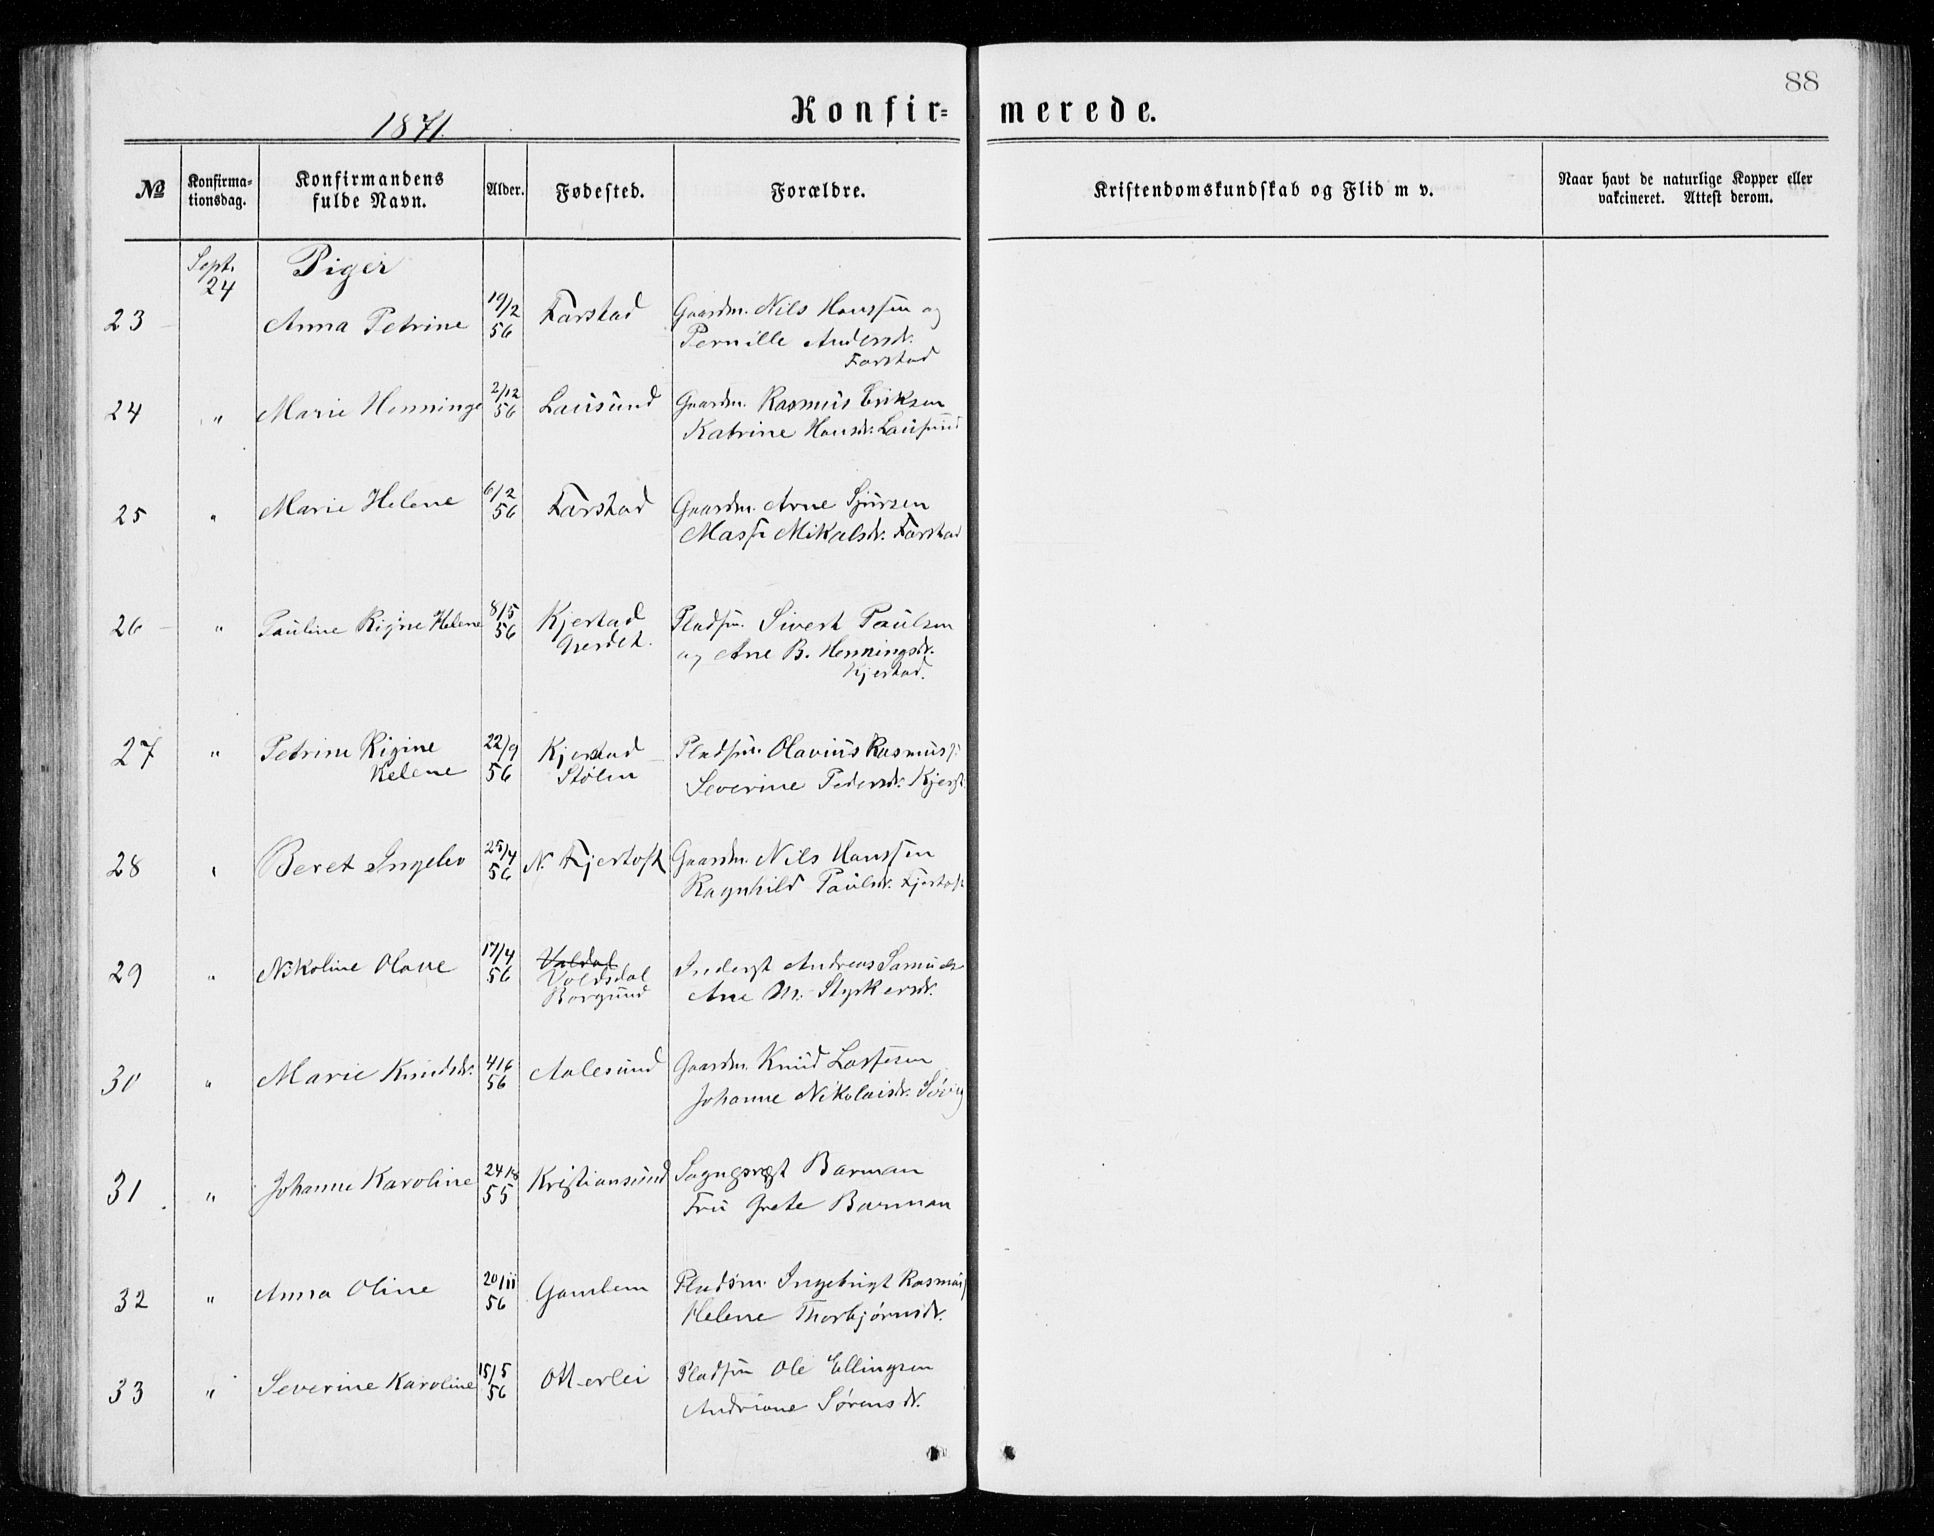 88
1871.
Konfir= merede.
№
Konfirma=
tionsdag.
Konfirmandens
fulde Navn.
Alder.
Fødested.
Forældre.
Kristendomskundskab og Flid m v.
Naar havt de naturlige Kopper eller
vakcineret. Attest derom.
Sept. 24 Piger
23 Anna Petrine 19/2 56 Farstad Gaardm. Nils Hanssen og
Pernille Andersdr.
Farstad
24 " Marie Henninge 2/12 56 Lausund Gaardm. Rasmus Eriksen
Katrine Hansdr. Lausund
25 " Marie Helene 6/2 56 Farstad Gaardm. Arne Sjursen
Massi Mikalsdr. Farstad
26 " Pauline Rigine Helene 8/5 56 Kjerstad Pladsm. Sivert Paulsen
Gerdet. og Ane B. Henningsdr.
Kjerstad.
27 " Petrine Rigine 22/9 56 Kjerstad Pladsm. Olavius Rasmuss
Helene Stølen Severine Pedersdr. Kjerst
28 " Beret Ingebo 25/4 56 N. Fjertoft Gaardm. Nils Hanssen
Ragnhild Paulsdr. Fjertoft
29 " Nikoline Olave 17/4 56 Valdal Inderst Andreas Samuels
Voldsdal Ane M. Styrkersdr.
Borgund
30 " Marie Knudsdr. 4/6 56 Aalesund Gaardm. Knud Larsesen
Johanne Nikolaisdr. Søvig
31 " Johanne Karoline 24/8 55 Kristiansund Sogneprest Barman
Fru Grete Barman
32 " Anna Oline 20/11 56 Gamlem Pladsm. Ingebrigt Rasmus
Helene Thorbjørnsdr.
33 " Severine Karoline 15/5 56 Otterlei Pladsm Ole Ellingsen
Andriane Sørensdr.